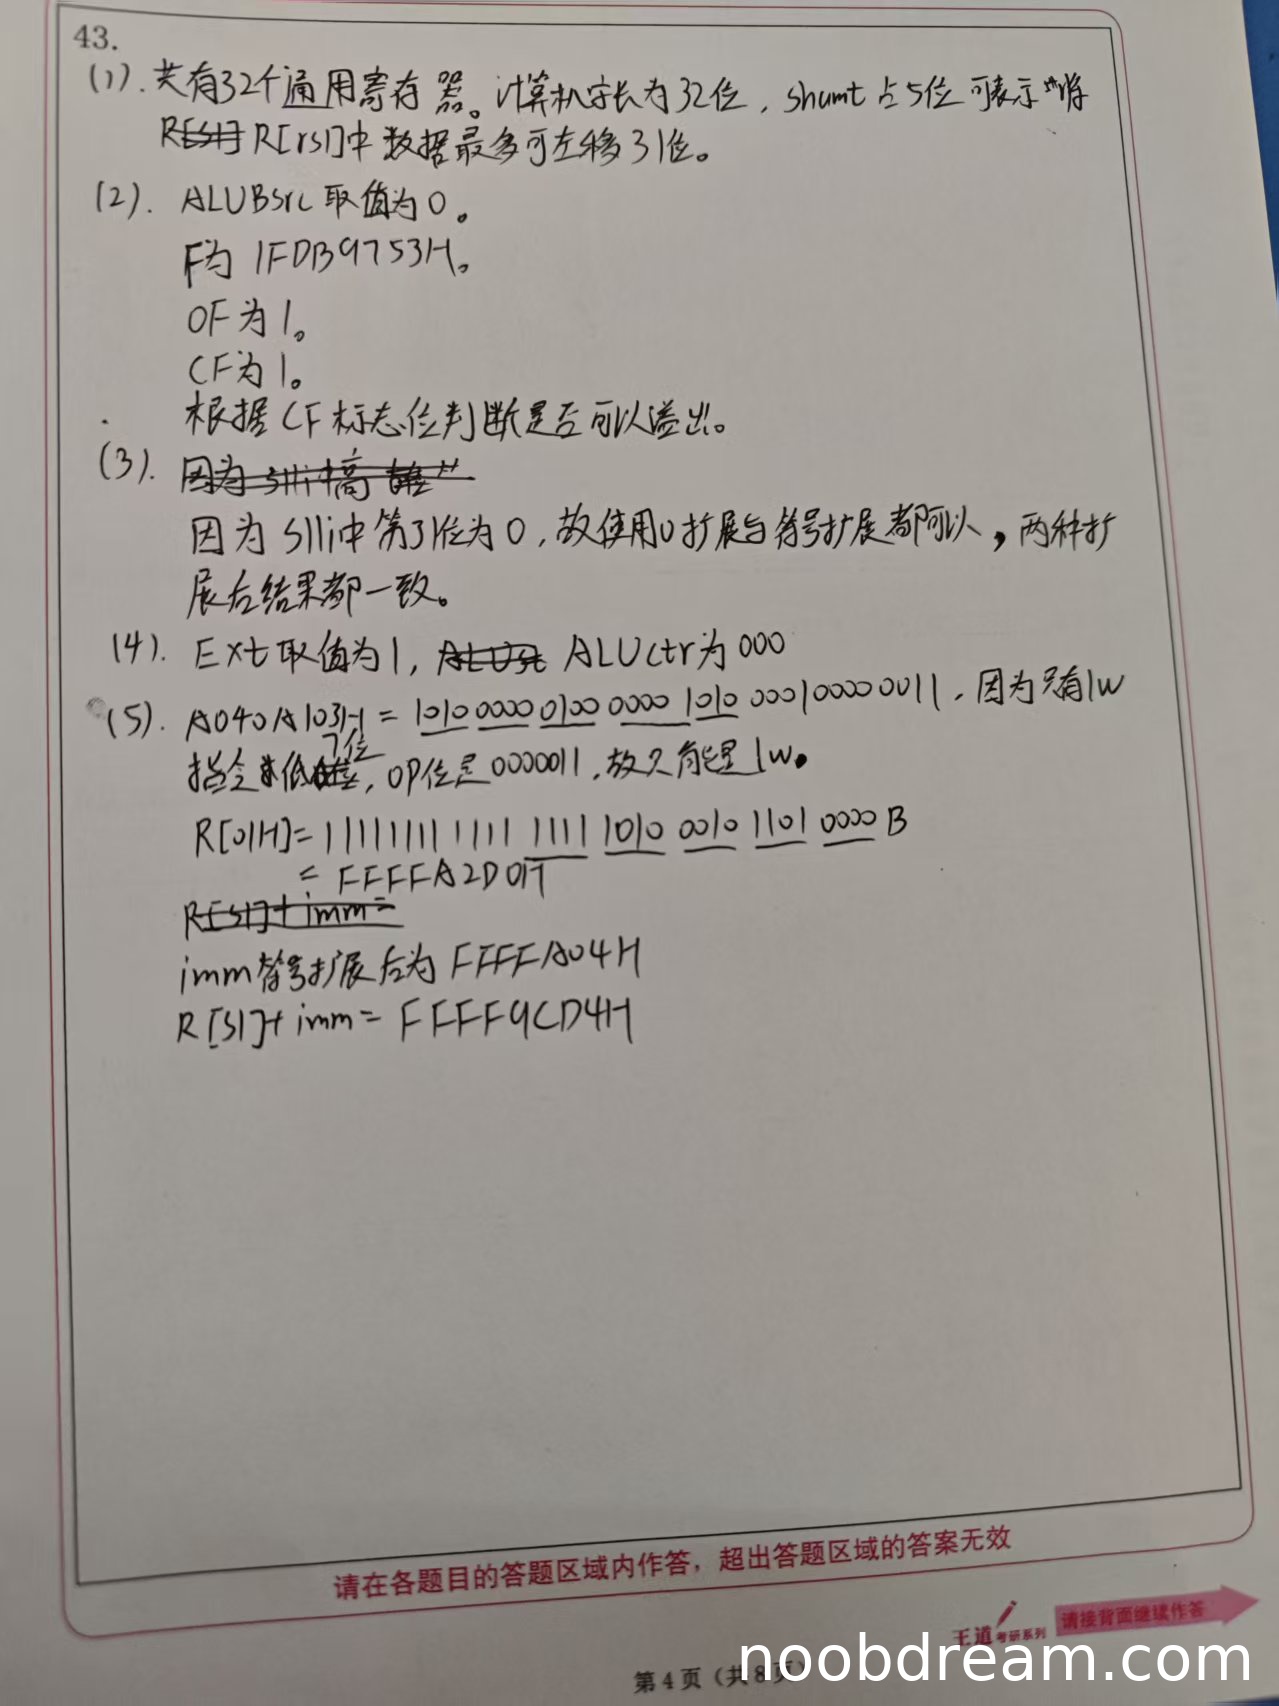 43.
(1). 共有32个通用寄存器。计算机字长为32位，shamt占5位可表示"将
R[rs1]中数据最多可左移31位。
(2). ALUBsrc取值为0。
F为 1FDB9753H。
OF为1。
CF为1。
根据CF标志位判断是否可以溢出。
(3). 因为 slli中高
因为slli中第31位为0，故使用0扩展与符号扩展都可以，两种扩
展后结果都一致。
(4). Ext取值为1，ALUctr为000
(5). A040A103H = 1010 0000 0100 0000 1010 0001 0000 0011，因为只有lw
指令低7位，OP位是0000011，故只能是lw。
R[01H]= 1111 1111 1111 1111 1010 0010 1101 0000 B
= FFFFA2D0H
R[s1]+imm=
imm符号扩展后为 FFFFFA04H
R[s1]+imm = FFFF9CD4H
请在各题目的答题区域内作答，超出答题区域的答案无效
王道考研系列 请接背面继续作答
第4页（共8页）
noobdream.com